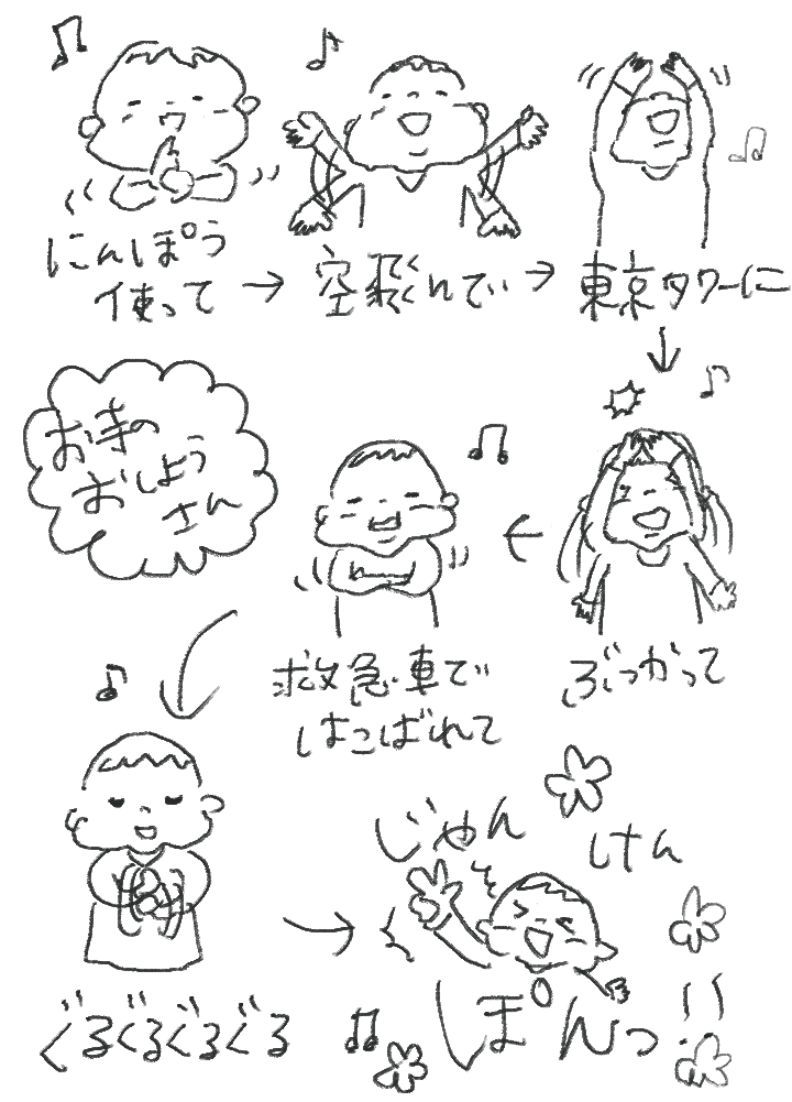 にんぽう
使って
空飛んでぃ
東京タワーに
ぶつかって
救急車で
はこばれて
お寺の
おしょう
さん
ぐるぐるぐるぐる
じゃん
けん
ぽんっ!!